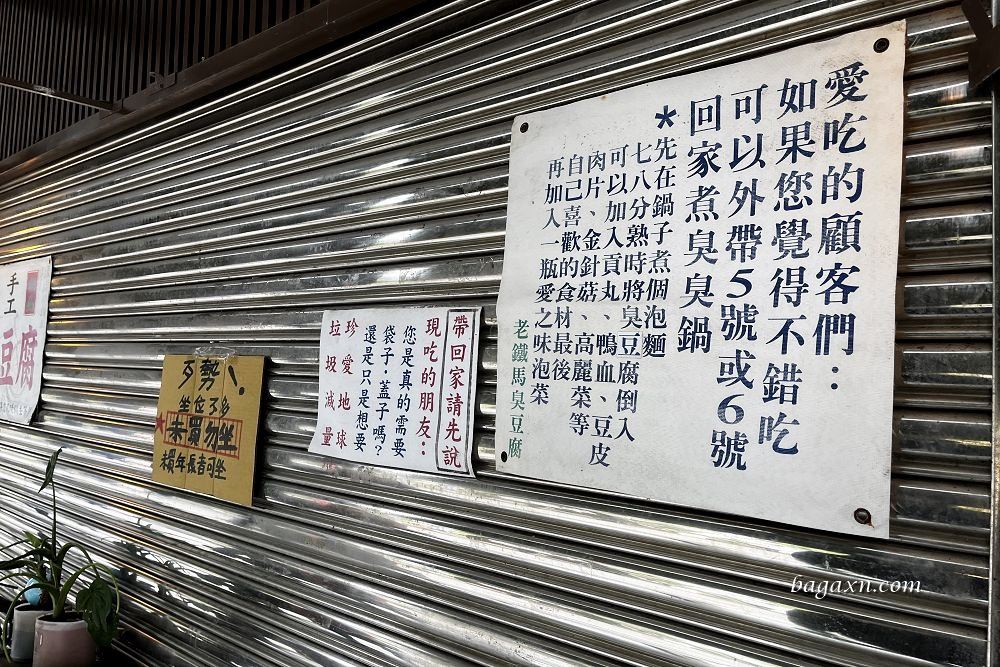 愛吃的顧客們：
如果您覺得不錯吃
可以外帶5號或6號
回家煮臭臭鍋
*先在鍋子煮個泡麵
七八分熟時將臭豆腐倒入
可以加入貢丸、鴨血、豆皮
肉片、金針菇、高麗菜等
自己喜歡的食材最後
再加入一瓶愛之味泡菜
老鐵馬臭豆腐
帶回家請先說
現吃的朋友：
您是真的需要
袋子、蓋子嗎？
還是只是想要
珍愛地球
垃圾減量
歹勢！
坐位不多
*未買勿坐
未買年長者可坐
手工
豆腐
bagaxn.com